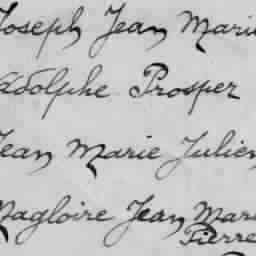 Joseph Jean Marie
Adolphe Prosper
Jean Marie Julien
Magloire Jean Marie
Pierre